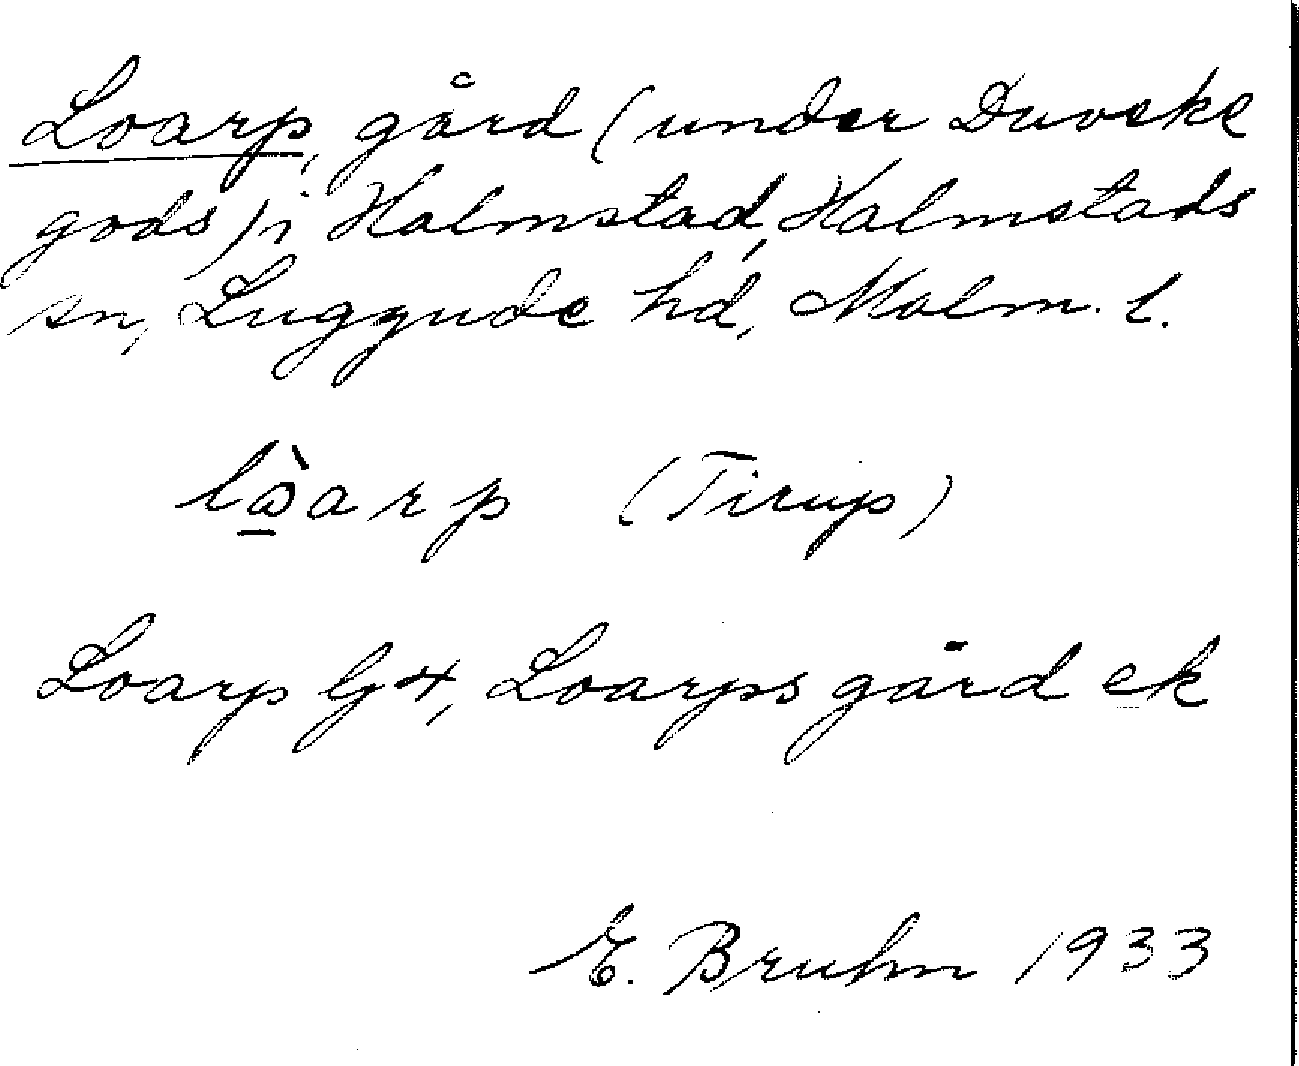 Loarp, gård (under Duveke
gods) i Halmstad, Halmstads
sn, Luggude hd, Malm. l.
lòarp (Tirup)
Loarp Gx, Loarps gård ek
E. Bruhn 1933